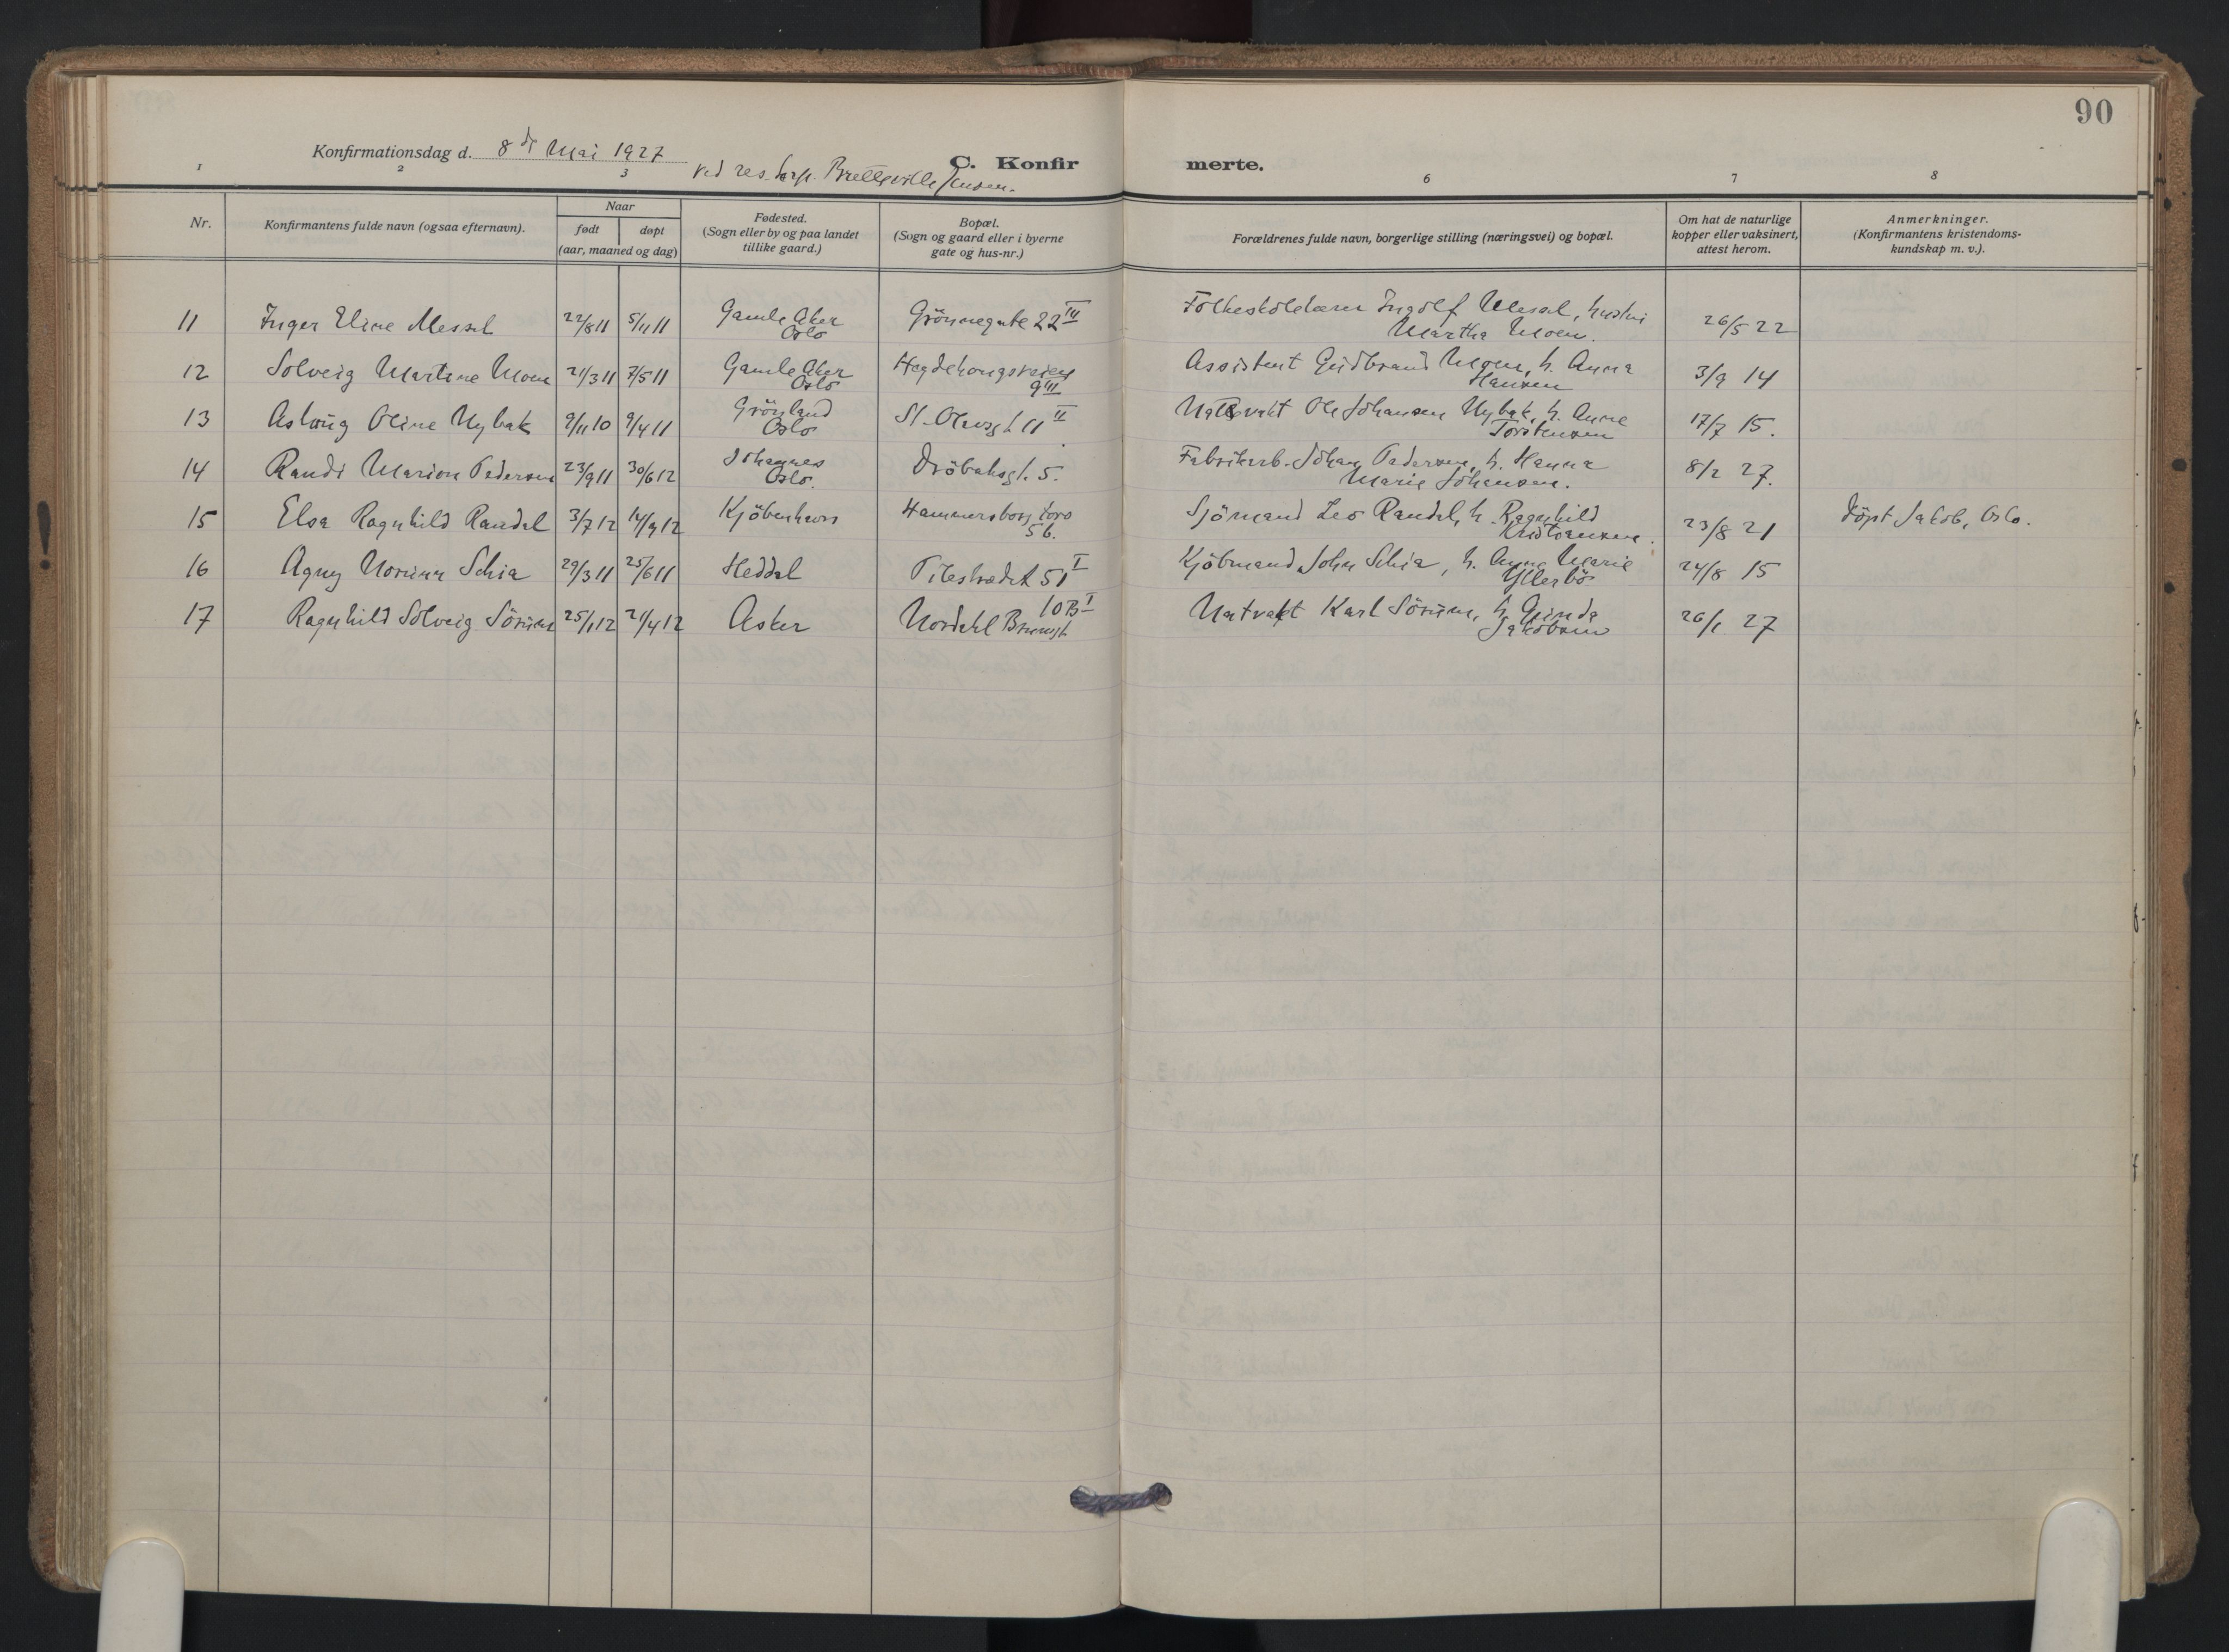 90
Konfirmationsdag d. 8de Mai 1927
ved res. kap. Bretteville Jensen.
C. Konfirmerte.
1 2 3 6 7 8
Nr.
Konfirmantens fulde navn (ogsaa efternavn).
Naar
født døpt
(aar, maaned og dag)
Fødested.
(Sogn eller by og paa landet
tillike gaard.)
Bopæl.
(Sogn og gaard eller i byerne
gate og hus-nr.)
Forældrenes fulde navn, borgerlige stilling (næringsvei) og bopæl.
Om hat de naturlige
kopper eller vaksinert,
attest herom.
Anmerkninger.
(Konfirmantens kristendoms-
kundskap m. v.).
11 Inger Eline Messel 22/8 11 5/11 11 Gamle Aker Grönnegate 22 III Folkeskolelærer Ingolf Messel, hustru 26/5 22
Oslo Martha Moen.
12 Solveig Martine Moen 21/3 11 7/5 11 Gamle Aker Hegdehaugsveien Assistent Gudbrand Moen, h. Anna 3/9 14
Oslo 9 III Hansen
13 Aslaug Oline Nybak 9/11 10 9/4 11 Grönland St. Olavsgt 11 II Natvakt Ole Johansen Nybak, h. Anne 17/7 15.
Oslo Torstensen
14 Randi Marion Pedersen 23/9 11 30/6 12 Johannes Dröbaksgt. 5. Fabrikarb. Johan Pedersen, h. Hanna 8/2 27.
Oslo. Marie Johansen.
15 Elsa Ragnhild Randal 3/7 12 14/9 12 Kjöbenhavn Hammersborg torv Sjömand Leo Randal, h. Ragnhild 23/8 21 Döpt Jakob, Oslo.
5b. Kristiansen.
16 Agny Norunn Schia 29/3 11 25/6 11 Heddal Pilestrædet 51 I Kjöbmand John Schia, h. Anna Marie 24/8 15
Ytterbö
17 Ragnhild Solveig Sörum 25/1 12 21/4 12 Asker Nordahl Brunsgt 10B I Natvakt Karl Sörum, h. Gunda 26/1 27
Jakobsen